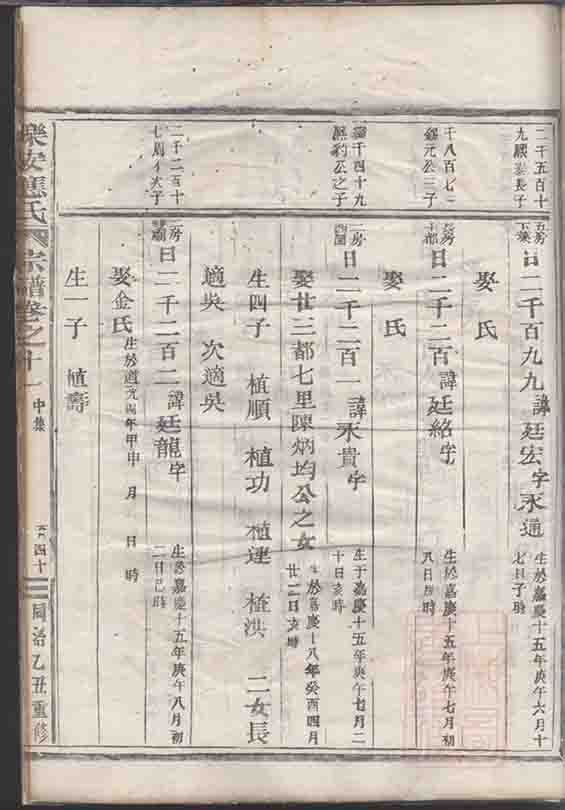 二千五百十
九𨽻長子
五房
曰二千百九九諱廷宏字永通
生於嘉慶十五年庚午六月十
七日子時
娶氏
千八百七
元公三子
房
都
曰二千二百諱廷絡字
生於嘉慶十五年庚午七月初
八日時
娶氏
千四十九
公之子
二房
曰二千二百一諱永貴字
生于嘉慶十五年庚午七月二
十日亥時
娶廿三都七里陳炳均公之女
生於嘉慶十八年癸酉四月
廿二日亥時
生四子 植順 植功 植連 植洪 二女長
適吳 次適吳
二千二百十
七長子
房
曰二千二百二諱廷龍字
生於嘉慶十五年庚午八月初
二日巳時
娶金氏生於道光四年甲申 月 日 時
生一子 植壽
樂安應氏宗譜卷之十一 中集
百四十
同治乙丑重修